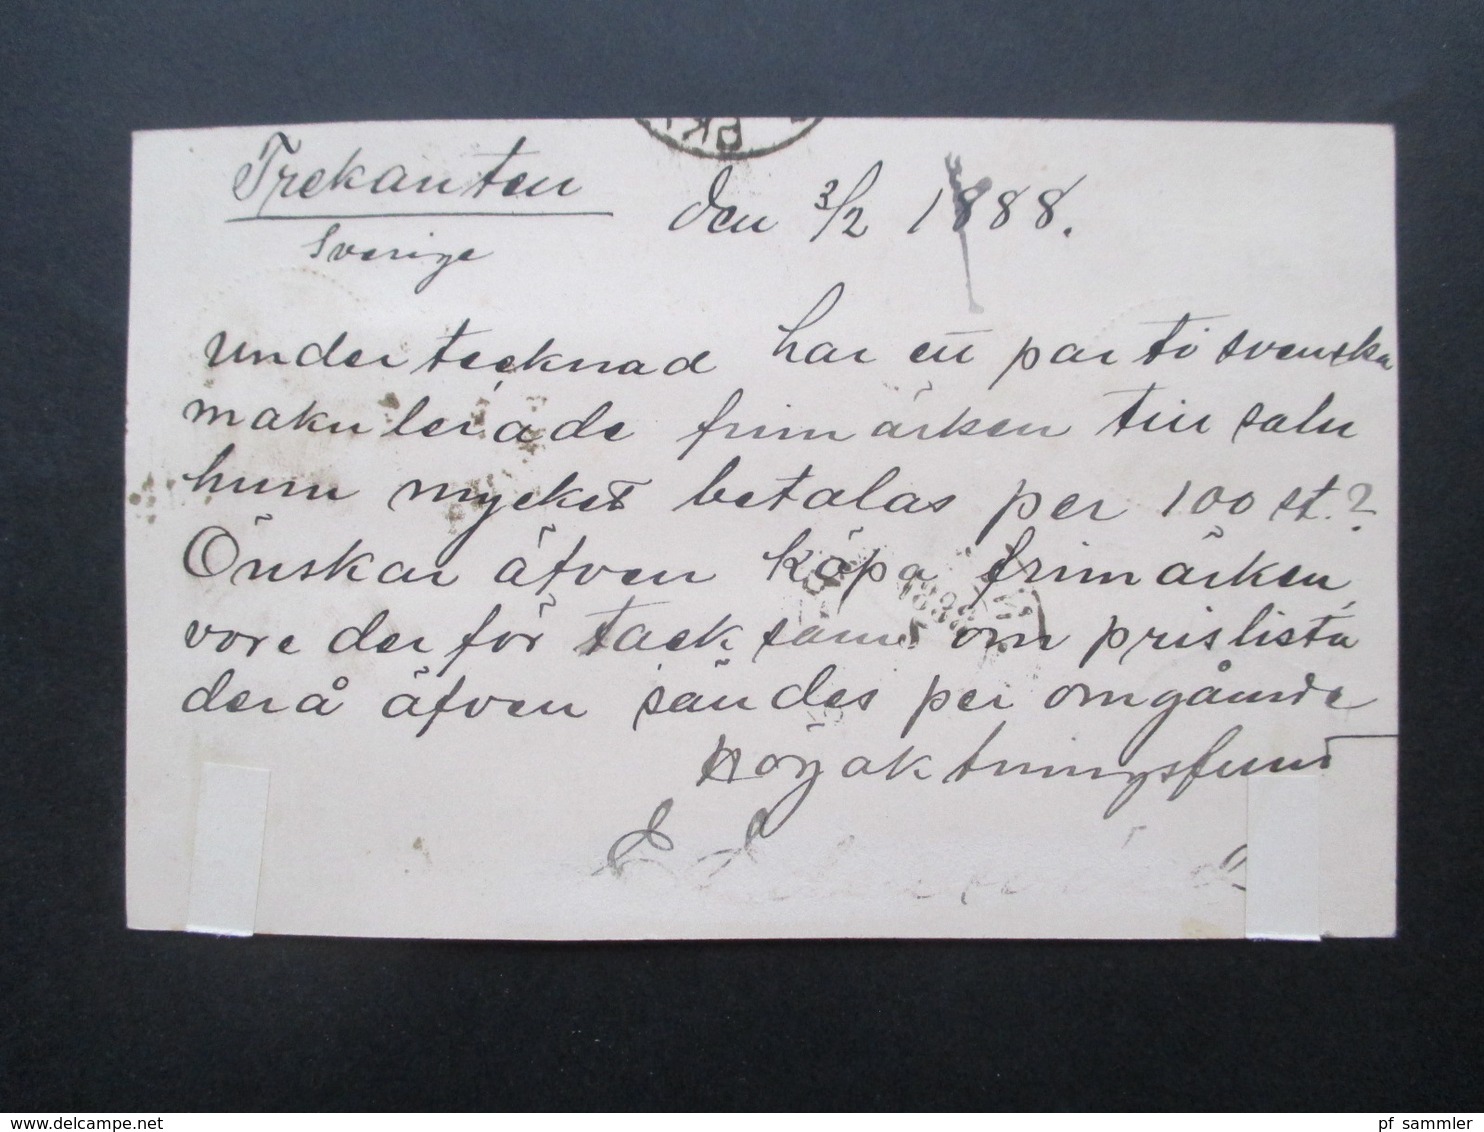 Trekanten
Sverige
den 3/2 1888.
undertecknad har ett parti svenska
makulerade frimärken till salu
huru mycket betalas per 100 st.?
Önskar äfven köpa frimärken,
vore derför tacksam om prislista
derå äfven sändes per omgående
Högaktningsfullt
www.delcampe.net
pf_sammler